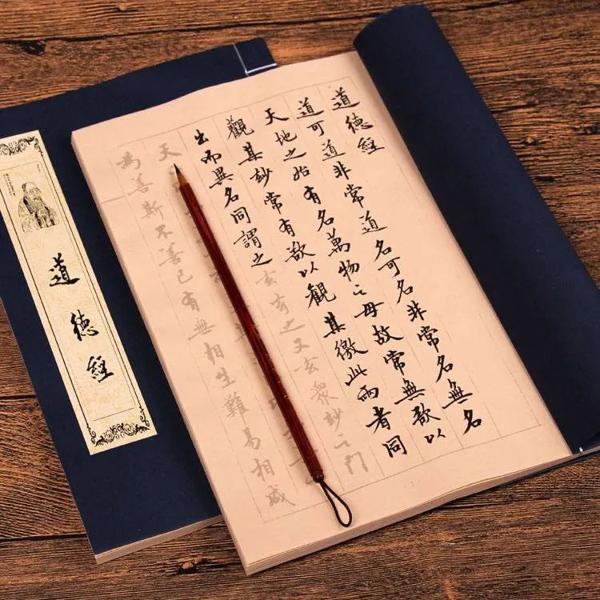 道德經
道可道非常道名可名非常名無名
天地之始有名萬物之母故常無欲以
觀其妙常有欲以觀其徼此兩者同
出而異名同謂之玄玄之又玄衆妙之門
天
為善斯不善已有無相生難易相成
道德經